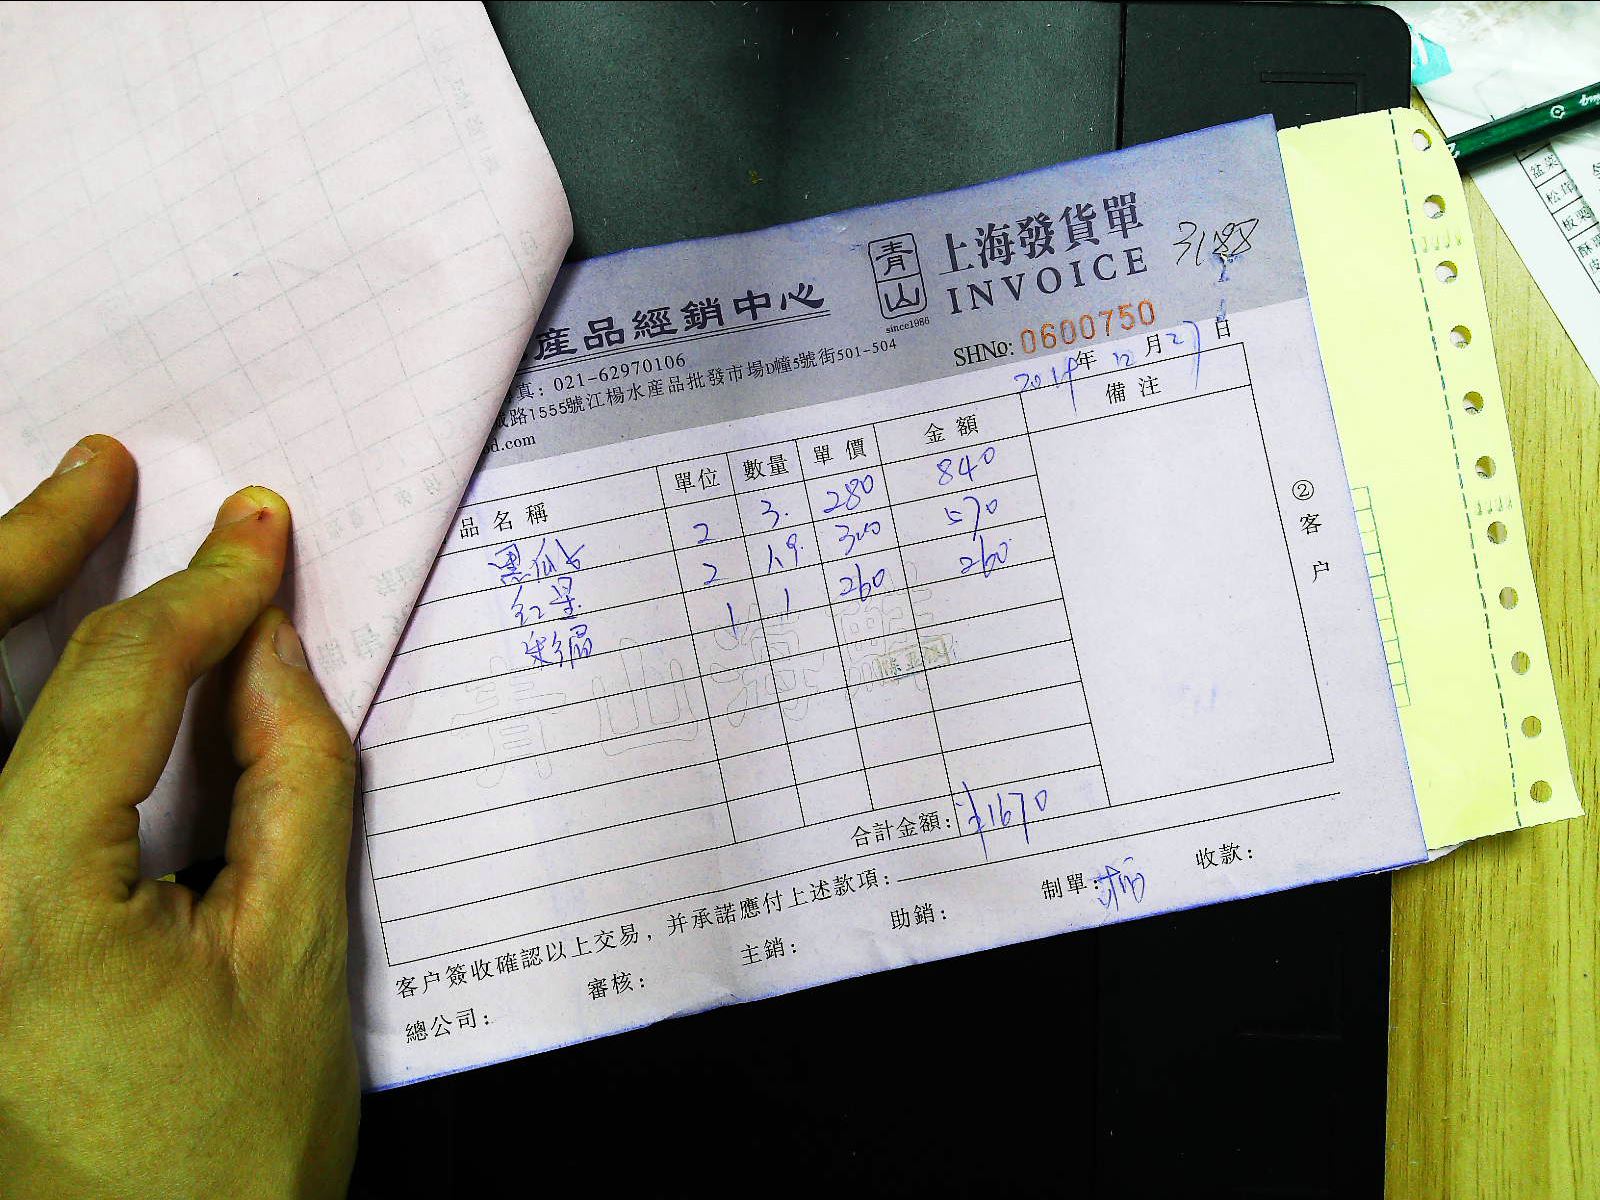 青山
since1986
上海發貨單
INVOICE
產品經銷中心
真：021-62970106
路1555號江楊水產品批發市場D幢5號街501-504
d.com
SHNo: 0600750
2014年 12月27日
品名稱 單位 數量 單價 金額 備注
2 3. 280 840
红星 2 1.9 300 570
1 1 260 260
青山海鮮
②客户
合計金額：¥1670
客户簽收確認以上交易，并承諾應付上述款項：
總公司： 審核： 主銷： 助銷： 制單： 收款：